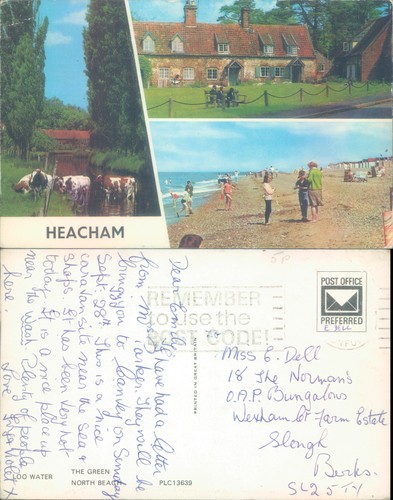 HEACHAM
Dear Emily, I have had a letter
from Mrs Parker. They will be
bringing you to Bramley on Sunday
Sept. 28th. This is a nice
caravan site near the Sea &
Shops. It has been very hot
today. It is a nice place up
near the Wash. Plenty of people
here. Love
LOO WATER
THE GREEN
NORTH BEACH
PLC13639
PRINTED IN GREAT BRITAIN
REMEMBER
to use the
POST CODE!
5P
POST OFFICE
PREFERRED
Miss E. Dell
18 The Norman's
O.A.P. Bungalows
Wexham Ct Farm Estate
Slough
Berks.
SL2 5TY